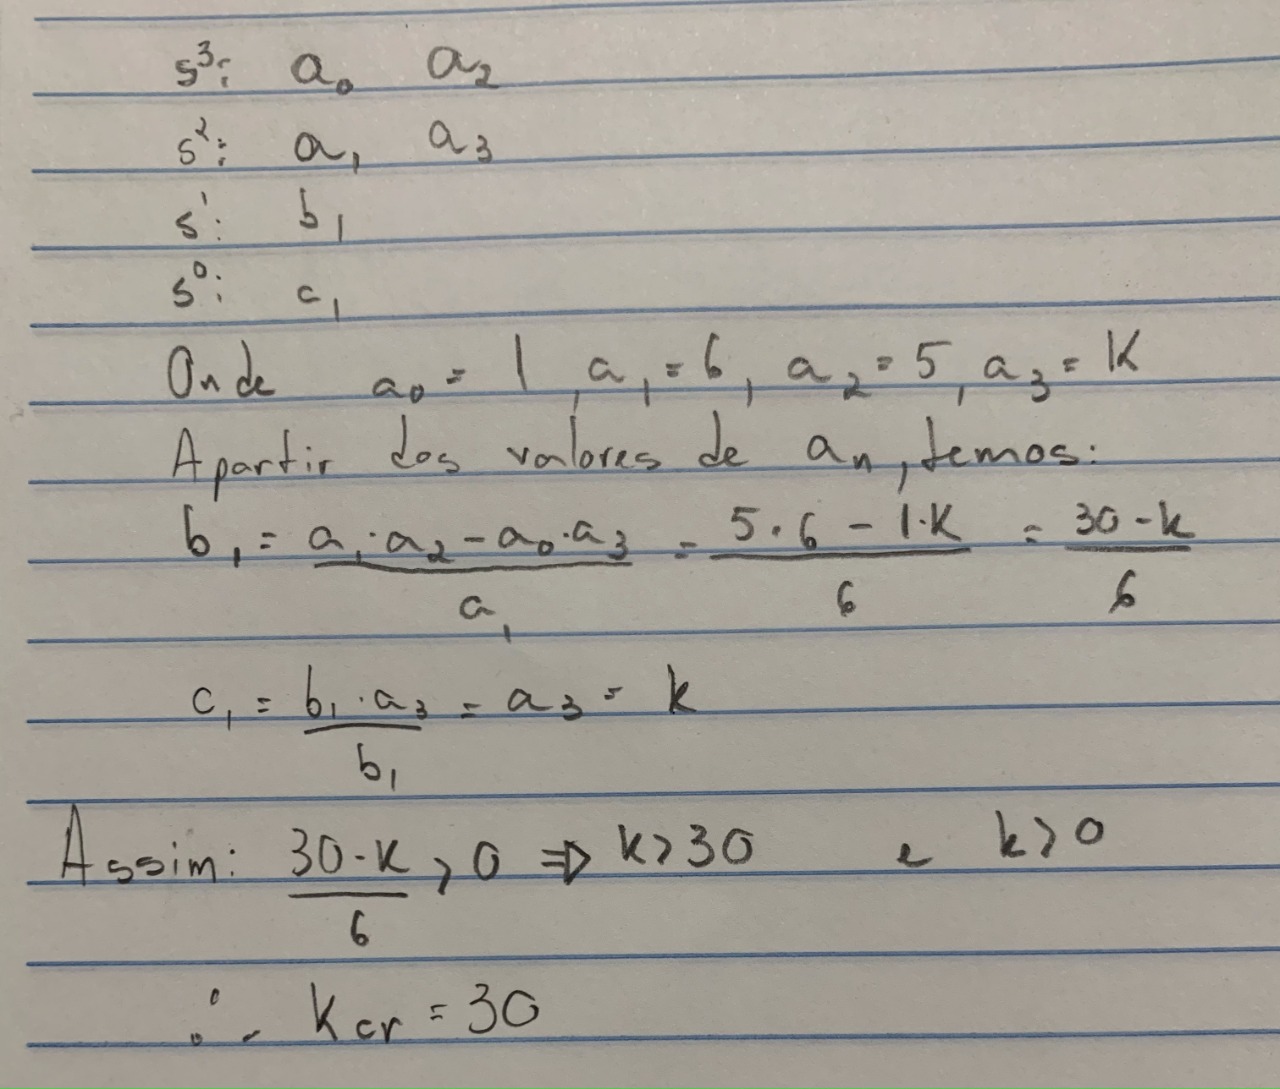 s³: a₀ a₂
s²: a₁ a₃
s¹: b₁
s⁰: c₁
Onde a₀ = 1, a₁ = 6, a₂ = 5, a₃ = K
Apartir dos valores de aₙ, temos:
b₁ = (a₁·a₂ - a₀·a₃)/a₁ = (5·6 - 1·K)/6 = (30 - k)/6
c₁ = (b₁·a₃)/b₁ = a₃ = k
Assim: (30 - K)/6 > 0 ⇒ k > 30 e k > 0
∴ Kcr = 30